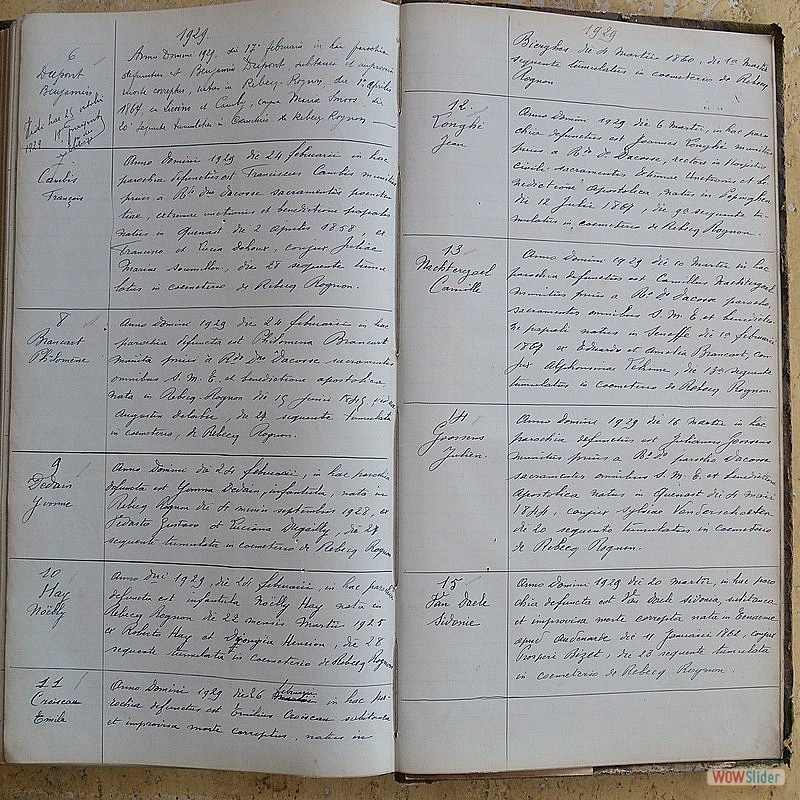 1929.
6
Dupont
Benjamin
Anno Domini 1929, die 17 februarii in hac parochia
defunctus est Benjamin Dupont, subitanea et improvisa
morte correptus, natus in Rebecq-Rognon, die 1 aprilis
1864 ex et conjux Maria die
20 sequente tumulatus in Rebecq Rognon
1929
Cambis
François
Anno Domini 1929 die 24 februarii in hac
parochia defunctus est Franciscus Cambis munitus
prius a Rdo Dno Dacosse sacramentis poeniten
tiae, extremae unctionis et benedictione
natus in Quenast die 2 1858, ex
Francisco et Lucia conjux Juliae
Mariae die 28 sequente tumu
latus in coemeterio de Rebecq Rognon.
8
Brancart
Philomène
Anno Domini 1929 die 24 februarii in hac
parochia defuncta est Philomena Brancart
munita prius a Rdo Dno Dacosse sacramentis
omnibus S. M. E. et benedictione apostolica
nata in Rebecq-Rognon die 15 junii 1845,
Augustini die 27 sequente tumulata
in coemeterio, de Rebecq Rognon.
9
Dedain
Yvonne
Anno Domini die 24 februarii, in hac parochia
defuncta est Yvonna Dedain, infantula, nata in
Rebecq Rognon die 4 mensis septembris 1928, ex
Gustavo et Luciana die 27
sequente tumulata in coemeterio de Rebecq Rognon
10
Hay
Noëlly
Anno Dni 1929, die 24 februarii, in hac parochia
defuncta est infantula Noëlly Hay nata in
Rebecq Rognon die 22 mensis Martii 1925
ex Roberto Hay et Georgia die 28
sequente tumulata in coemeterio de Rebecq Rognon
11
Croiseau
Emile
Anno Domini 1929 die 26 februarii in hac pa-
rochia defunctus est Emilius Croiseau subitanea
et improvisa morte correptus, natus in
1929
Bierghes die 4 Martii 1860, die 1a Martii
sequente tumulatus in coemeterio de Rebecq
Rognon
12
Jean
Anno Domini 1929 die 6 Martii, in hac paro
chia defunctus est Joannes munitus
prius a Rdo D. Dacosse, rectore in Hospitio
civili sacramentis Extremae Unctionis et be
nedictione apostolica, natus in
die 12 Julii 1867, die 9a sequente tu-
mulatus in coemeterio de Rebecq Rognon.
13
Nachtergael
Camille
Anno Domini 1929 die 10 Martii in hac
parochia defunctus est Camillus Nachtergael
munitus prius a Rdo Dno Dacosse parocho
sacramentis omnibus S. M. E et benedictio
ne papali natus in Seneffe die 1a februarii
1869 ex Eduardo et Amelia Brancart, con
jux Alphonsina die 13a sequente
tumulatus in coemeterio de Rebecq Rognon.
14
Goossens
Julien.
Anno domini 1929 die 16 martii in hac
parochia defunctus est Julianus Goossens
munitus prius a Rdo Dno parocho Dacosse
sacramentis omnibus S. M. E et benedictione
Apostolica natus in Quenast die 4 maii
1844, conjux Sylviae Vanderschueren
die 20 sequente tumulatus in coemeterio
de Rebecq Rognon.
15
Van Daele
Sidonie
Anno Domini 1929 die 20 martii, in hac paro
chia defuncta est Van Daele Sidonia, subitanea
et improvisa morte correpta nata in
apud Audenarde die 11 Januarii 1862, conjux
Prosperi Bizet, die 23 sequente tumulata
in coemeterio de Rebecq Rognon.
WOWSlider